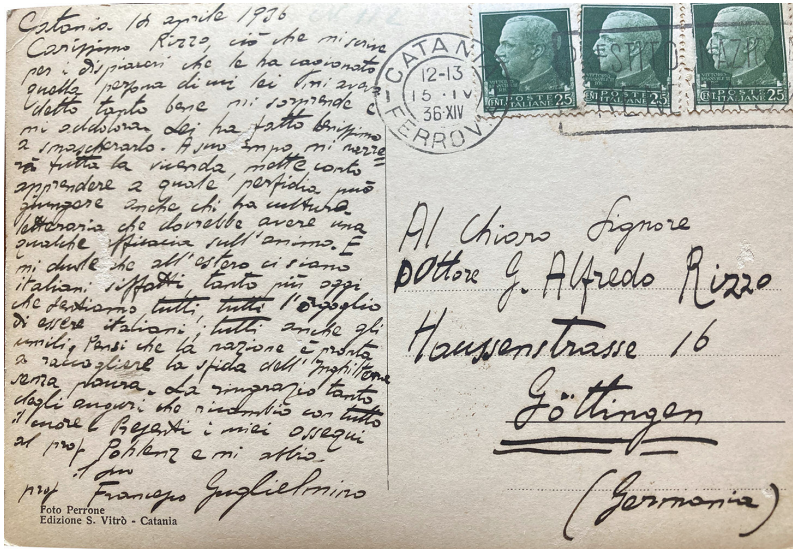 Catania 14 aprile 1936
Carissimo Rizzo, ciò che mi scrive
per i dispiaceri che le ha cagionato
quella persona di cui lei mi aveva
detto tanto bene mi sorprende e
mi addolora. Lei ha fatto benissimo
a smascherarlo. A suo tempo, mi narre=
rà tutta la vicenda, mette conto
apprendere a quale perfidia può
giungere anche chi ha cultura
letteraria che dovrebbe avere una
qualche efficacia sull'animo. E
mi duole che all'estero ci siano
italiani siffatti tanto più oggi
che sentiamo tutti, tutti l'orgoglio
di essere italiani, tutti anche gli
umili. Pensi che la nazione è pronta
a raccogliere la sfida dell'Inghilterra
senza paura. La ringrazio tanto
degli auguri che ricambio con tutto
il cuore. Presenti i miei ossequi
al prof. Pohlenz e mi abbia
il suo
prof Francesco Guglielmino
Foto Perrone
Edizione S. Vitrò - Catania
CATANIA
12-13
15 · IV
36·XIV
FERROVIA
CENT. POSTE ITALIANE 25
CENT. POSTE ITALIANE 25
CENT. POSTE ITALIANE 25
Al Chiaro Signore
Dottore G. Alfredo Rizzo
Haussenstrasse 16
Göttingen
(Germania)